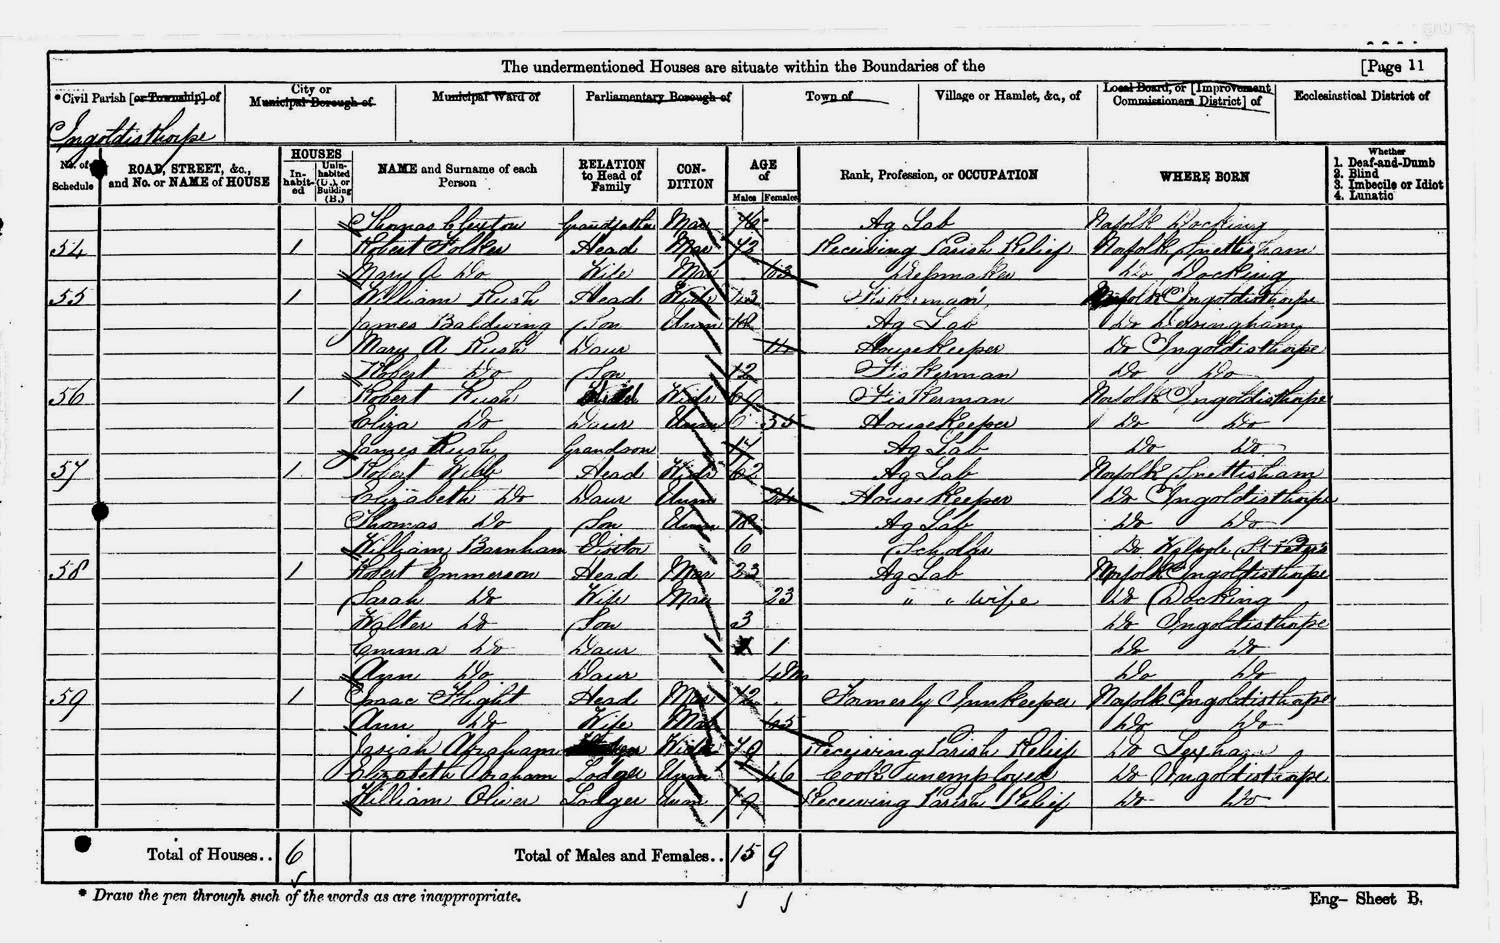 The undermentioned Houses are situate within the Boundaries of the [Page 11
*Civil Parish [or Township] of
City or Municipal Borough of
Municipal Ward of
Parliamentary Borough of
Town of
Village or Hamlet, &c., of
Local Board, or [Improvement Commissioners District] of
Ecclesiastical District of
Ingoldisthorpe
No. of Schedule
ROAD, STREET, &c., and No. or NAME of HOUSE
HOUSES
In-habit-ed
Unin-habited (U.), or Building (B.)
NAME and Surname of each Person
RELATION to Head of Family
CON-DITION
AGE of
Males
Females
Rank, Profession, or OCCUPATION
WHERE BORN
Whether
1. Deaf-and-Dumb
2. Blind
3. Imbecile or Idiot
4. Lunatic
Thomas Grandfather Mar 76 Ag Lab Norfolk Docking
54 1 Robert Folker Head Mar 72 Receiving Parish Relief Norfolk Snettisham
Mary A Do Wife Mar 63 Do Docking
55 1 William Rush Head Widr Fisherman Norfolk Ingoldisthorpe
James Baldwing Son Unm 18 Ag Lab Do Dersingham
Mary A Rush Daur 14 Housekeeper Do Ingoldisthorpe
Robert Do Son 12 Fisherman Do Do
56 1 Robert Rush Head Widr Fisherman Norfolk Ingoldisthorpe
Eliza Do Daur Unm 35 Housekeeper Do Do
James Rush Grandson 14 Ag Lab Do Do
57 1 Robert Webb Head Widr 62 Ag Lab Norfolk Snettisham
Elizabeth Do Daur Unm 24 Housekeeper Do Ingoldisthorpe
Thomas Do Son Unm 18 Ag Lab Do Do
William Barnham Visitor 6 Scholar Do Walpole St Peters
58 1 Robert Emmerson Head Mar 23 Ag Lab Norfolk Ingoldisthorpe
Sarah Do Wife Mar 23 " " wife Do Docking
Walter Do Son 3 Do Ingoldisthorpe
Emma Do Daur 1 Do Do
Ann Do Daur 4m Do Do
59 1 Isaac Flight Head Mar 72 Formerly Innkeeper Norfolk Ingoldisthorpe
Ann Do Wife Mar 65 Do Do
Josiah Abraham Widr 79 Receiving Parish Relief Do
Elizabeth Abraham Lodger Unm 46 Cook unemployed Do Ingoldisthorpe
William Oliver Lodger Unm 79 Receiving Parish Relief Do Do
Total of Houses.. 6
Total of Males and Females.. 15 9
* Draw the pen through such of the words as are inappropriate.
Eng– Sheet B.